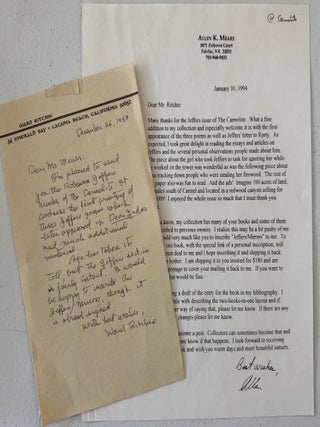 @ Carmelite
ALLEN K. MEARS
3871 Estkova Court
Fairfax, VA
January 10, 1994
Dear Mr. Ritchie:
Many thanks for the Jeffers issue of The Carmelite. What a fine
addition to my collection and especially welcome it is with the first
appearance of the three poems as well as Jeffers' letter to Rorty. As
expected, I took great delight in reading the essays and articles on
Jeffers and the several personal observations people made about him.
The piece about the girl who took Jeffers to task for ignoring her while
he worked on the tower was wonderful as was the following piece about
tracking down people who were stealing her firewood. The rest of
paper also was fun to read. And the ads! Imagine 100 acres of land,
miles south of Carmel and located in a redwood canyon selling for
I enjoyed the whole issue so much that I must thank you
know, my collection has many of your books and some of them
inscribed to previous owners. I realize this may be a bit pushy of me
would very much like you to inscribe "Jeffers/Meteors" to me. To
book, with the special title of a personal inscription, will
great deal to me and I hope inscribing it and shipping it back
a bother. I am shipping it to you insured for $180 and am
postage to cover your mailing it back to me. If you want to
that would be fine.
a draft of the entry for the book in my bibliography. I
little with describing the two-books-in-one layout and if
way of saying that, please let me know. If there are any
changes please let me know.
become a pest. Collectors can sometimes become that and
me know if that happens. I look forward to receiving
and wish you warm days and more beautiful sunsets.
Best wishes,
Allen
WARD RITCHIE
38 EMERALD BAY • LAGUNA BEACH, CALIFORNIA 92651
December 26, 1993
Dear Mr Mears
I'm pleased to send
you the Robinson Jeffers
number of the Carmelite. It
contains the first printing of
three Jeffers poems which
later appeared in Dear Judas
and much additional
material.
Age has taken its
toll but the Jeffers section
is fairly intact. I would
be happy to inscribe the
Jeffers/Meteors, though it
is already signed.
With best wishes,
Ward Ritchie